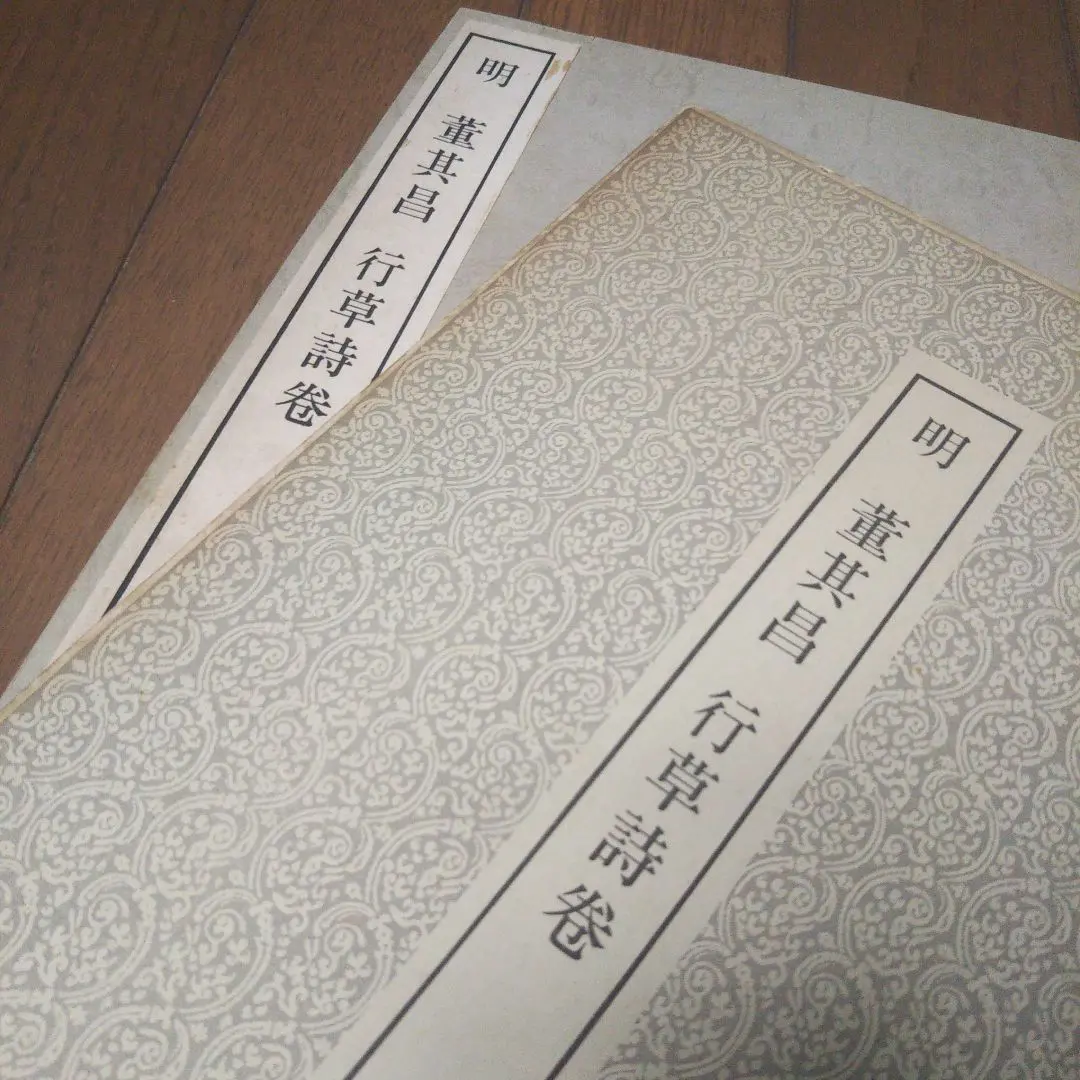 明 董其昌 行草詩卷
明 董其昌 行草詩卷